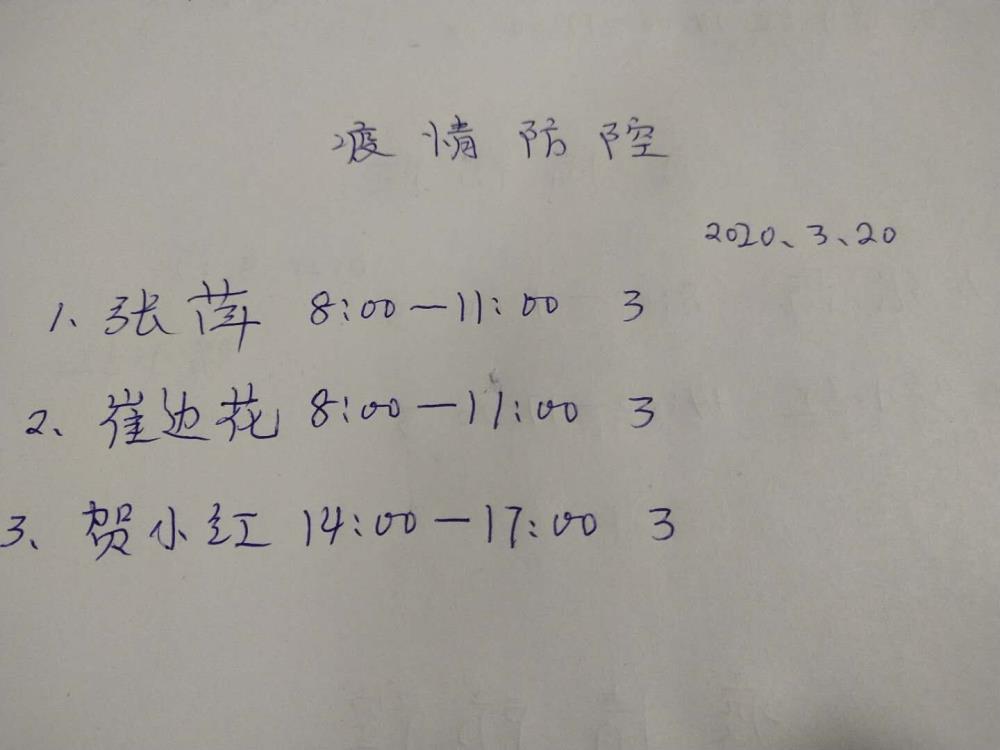 疫情防控
2020、3、20
1、张 8:00—11:00 3
2、崔边花 8:00—11:00 3
3、贺小红 14:00—17:00 3